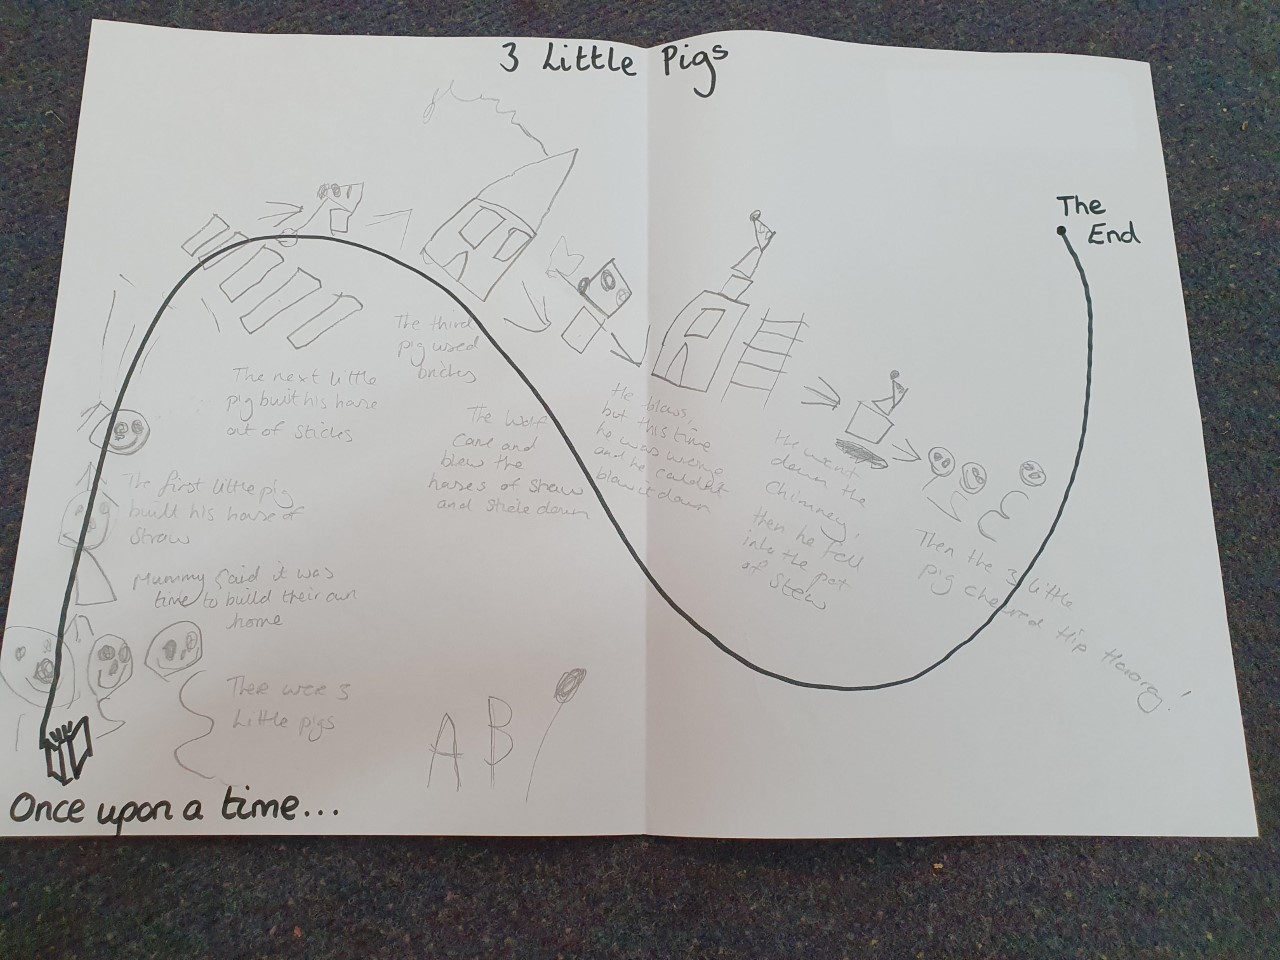 3 Little Pigs
Once upon a time...
There were 3
Little pigs
Mummy said it was
time to build their own
home
The first little pig
built his house of
straw
The next little
pig built his house
out of sticks
The third
pig used
bricks
The wolf
came and
blew the
houses of straw
and stick down
He blows,
but this time
he was wrong
and he couldn't
blow it down
He went
down the
chimney,
then he fell
into the pot
of stew
Then the 3 little
pig cheered Hip Horay!
The
End
A B